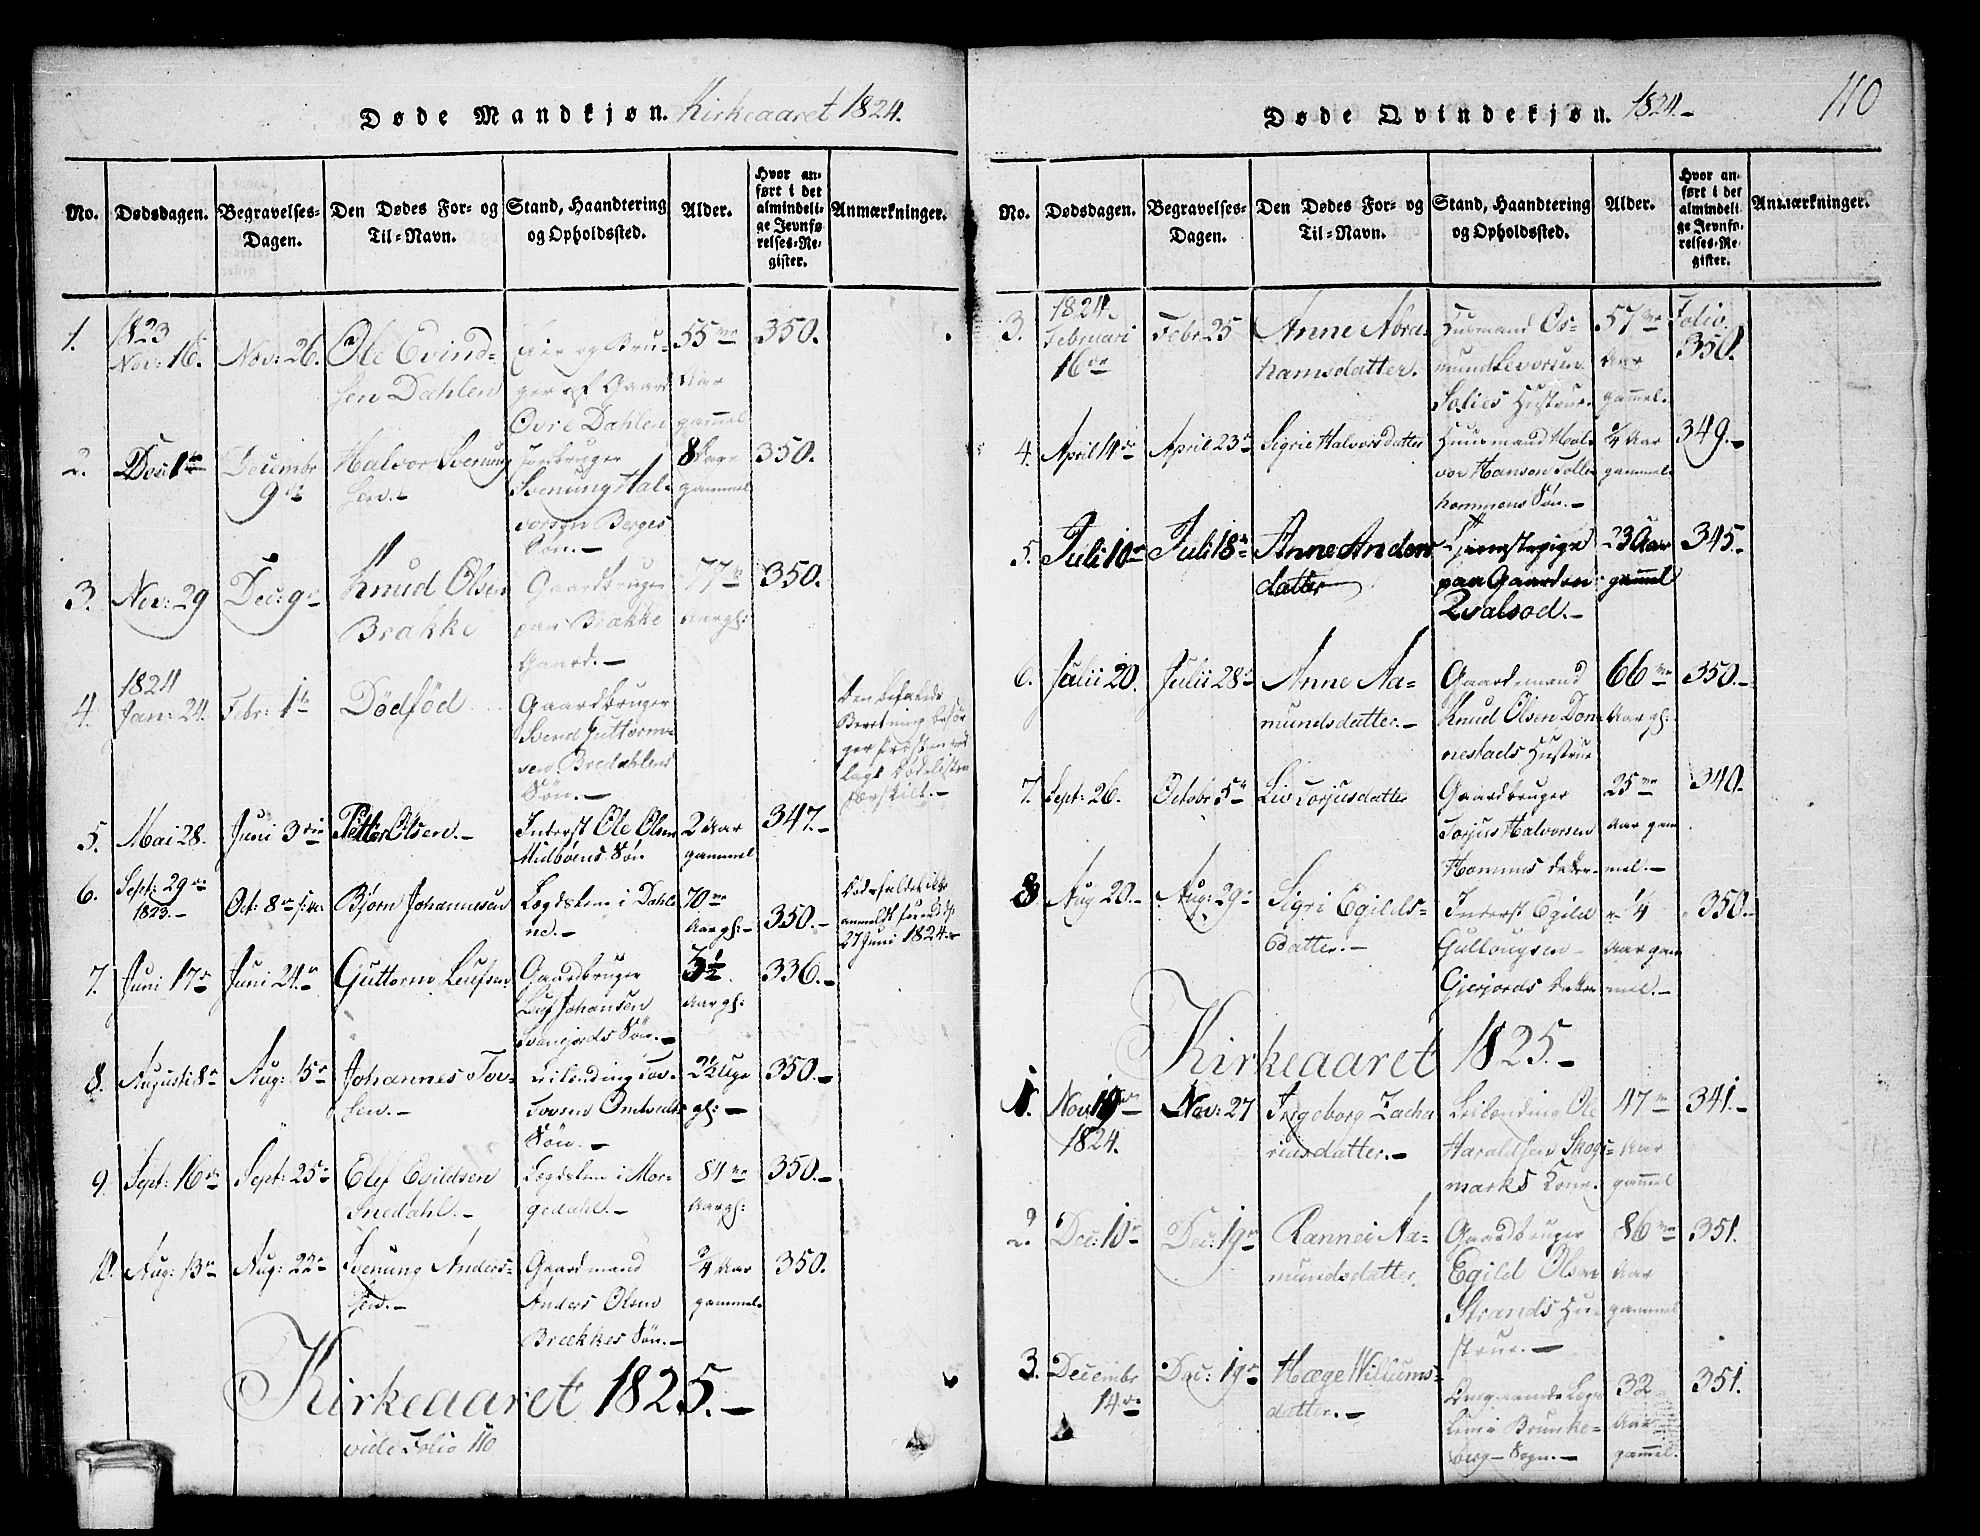 Døde Mandkjøn. Kirkeaaret 1824.
No. Dødsdagen. Begravelses-Dagen. Den Dødes For- og Til-Navn. Stand, Haandtering og Opholdssted. Alder. Hvor anført i det almindelige Jevnførelses-Register. Anmærkninger.
1. 1823 Nov: 16. Nov: 26. Ole Evind-
sen Dahlen
Eier og Bru-
ger af Gaard
Ovre Dahlen
55
Aar
gammel
350.
2. Dec: 1 Decembr
9
Halvor Svenung
sen.-
Jordbruger
Svenung Hal-
vorsen Berges
Søn.-
8
gammel
350.
3. Nov: 29 Dec: 9 Knud Olsen
Brakke
Gaardbruger
paa Brakke
Gaard.-
77
Aar gl:
350.
4. 1824
Jan: 24. Febr: 1 Dødfød
Gaardbruger
Svend Guttorm-
sen Bredahlens
Søn.-
Den befalede
Beretning
5. Mai 28. Juni 3 Petter Olsen.-
Inderst Ole Olsen
Midbøens Søn
2 Aar
gammel
347.-
6. Sept: 29
1823.- Oct: 8 Bjørn Johannesen
Legdslem i Dahle
ne.-
70
Aar gl:-
350.-
anmeldt
27 Juni 1824.
7. Juni 17 Juni 24 Guttorm Leufsen
Gaardbruger
Leuf Johansen
Søn.-
3½
Aar gl:
336.-
8. Augusti 8 Aug: 15 Johannes Tov-
sen.-
Leilending Tov
Tovsen Omtvedts
Søn.-
2½ Uge
gl:-
350.-
9. Sept: 16 Sept: 25 Elef Evildsen
Snedahl.-
Legdslem i Mor-
gedahl.-
84
Aar gl:
350.-
10. Aug: 13 Aug: 22 Svenung Anders-
sen.-
Gaardmand
Anders Olsen
Brækkes Søn.-
¾ Aar
gammel.
350.
Kirkeaaret 1825.-
vide Folio 110
Døde Qvindekjøn. 1824.-
110
No. Dødsdagen. Begravelses-Dagen. Den Dødes For- og Til-Navn. Stand, Haandtering og Opholdssted. Alder. Hvor anført i det almindelige Jevnførelses-Register. Anmærkninger.
3. 1824.
Februari
16 Febr: 25 Anne Abra-
hamsdatter.
Husmand Os-
mund Levorsen
Solies Hustrue.
57
Aar
gammel.
Folio
350.
4. April 14 April 23 Sigrie Halvorsdatter
Huusmand Hal-
vor Hansen
Søn.-
¼ Aar
gammel
349.-
5. Juli 10 Juli 18 Anne Anders
datter
Tjenestepige
paa Gaarden
Qvalsod.-
23 Aar
gammel
345.-
6. Julii 20. Julii 28 Anne Aa-
mundsdatter.-
Gaardmand
Knud Olsen Don-
nestads Hustrue
66
Aar gl:
350.-
7. Sept: 26. Octobr 5 Liv Torjusdatter
Gaardbruger
Torjus Halvorsen
Hommes datter
25
Aar gam
mel.-
340.
8 Aug 20.- Aug: 29 Sigri Egilds-
datter.-
Inderst Egild
Gullougsen
Gjerjords datter
¼
Aar gam
mel.-
350.-
Kirkeaaret 1825.-
1. Nov: 19
1824. Nov: 27 Ingeborg Zacha
riasdatter.-
Leilending Ole
Haraldsen Skogs-
marks Kone.
47
Aar
gammel
341.-
2. Dec: 10 Dec: 19 Rannei Aa-
mundsdatter.
Gaardbruger
Egild Olsen
Strands Hu-
strue.-
86
Aar
gammel
351.
3. Decembr
14 Dec: 19 Hæge Willums-
datter.-
Omgaaende Legds
lem i Brunke-
berg Sogn.-
32
Aar
gammel.
351.